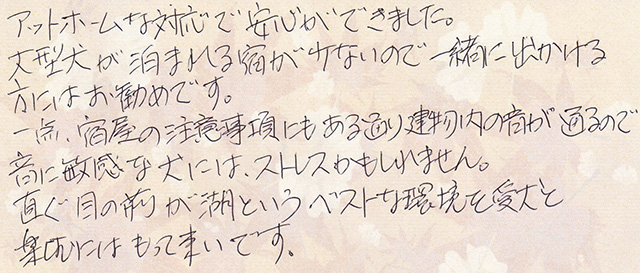 アットホームな対応で安心ができました。
大型犬が泊まれる宿が少ないので一緒に出かける
方にはお勧めです。
一点、宿屋の注意事項にもある通り建物内の音が通るので
音に敏感な犬には、ストレスかもしれません。
直ぐ目の前が湖というベストな環境を愛犬と
楽しむにはもって来いです。